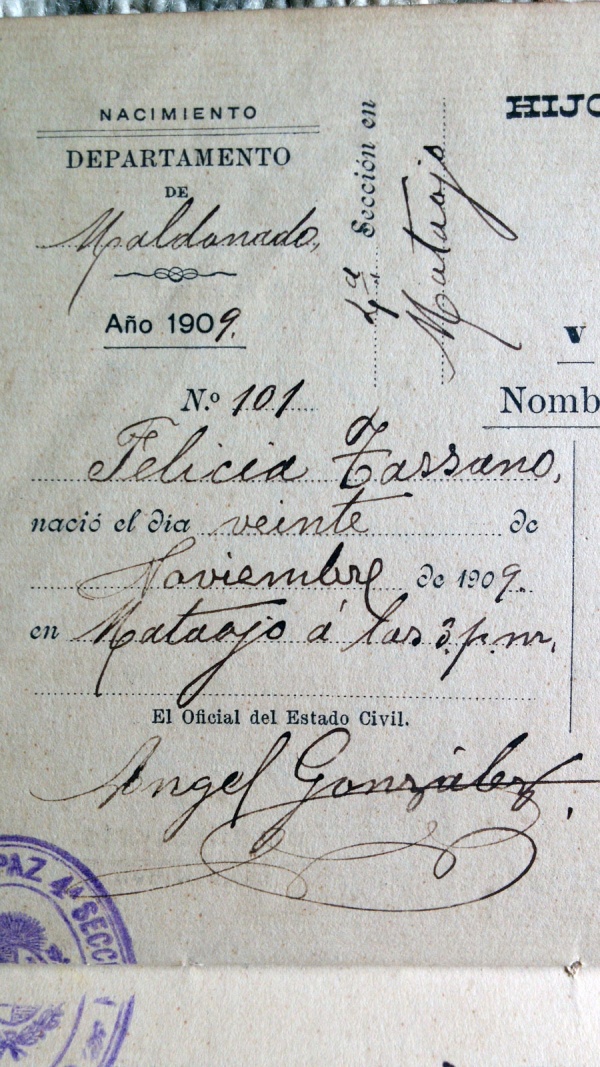 NACIMIENTO
DEPARTAMENTO
DE
Maldonado,
Año 1909.
4ª Sección en
Mataojo
N.º 101
Felicia Tassano,
nació el día veinte de
Noviembre de 1909.
en Mataojo á las 3 p.m.
El Oficial del Estado Civil.
Angel González
PAZ 4ª SECCI
HIJO
V
Nomb